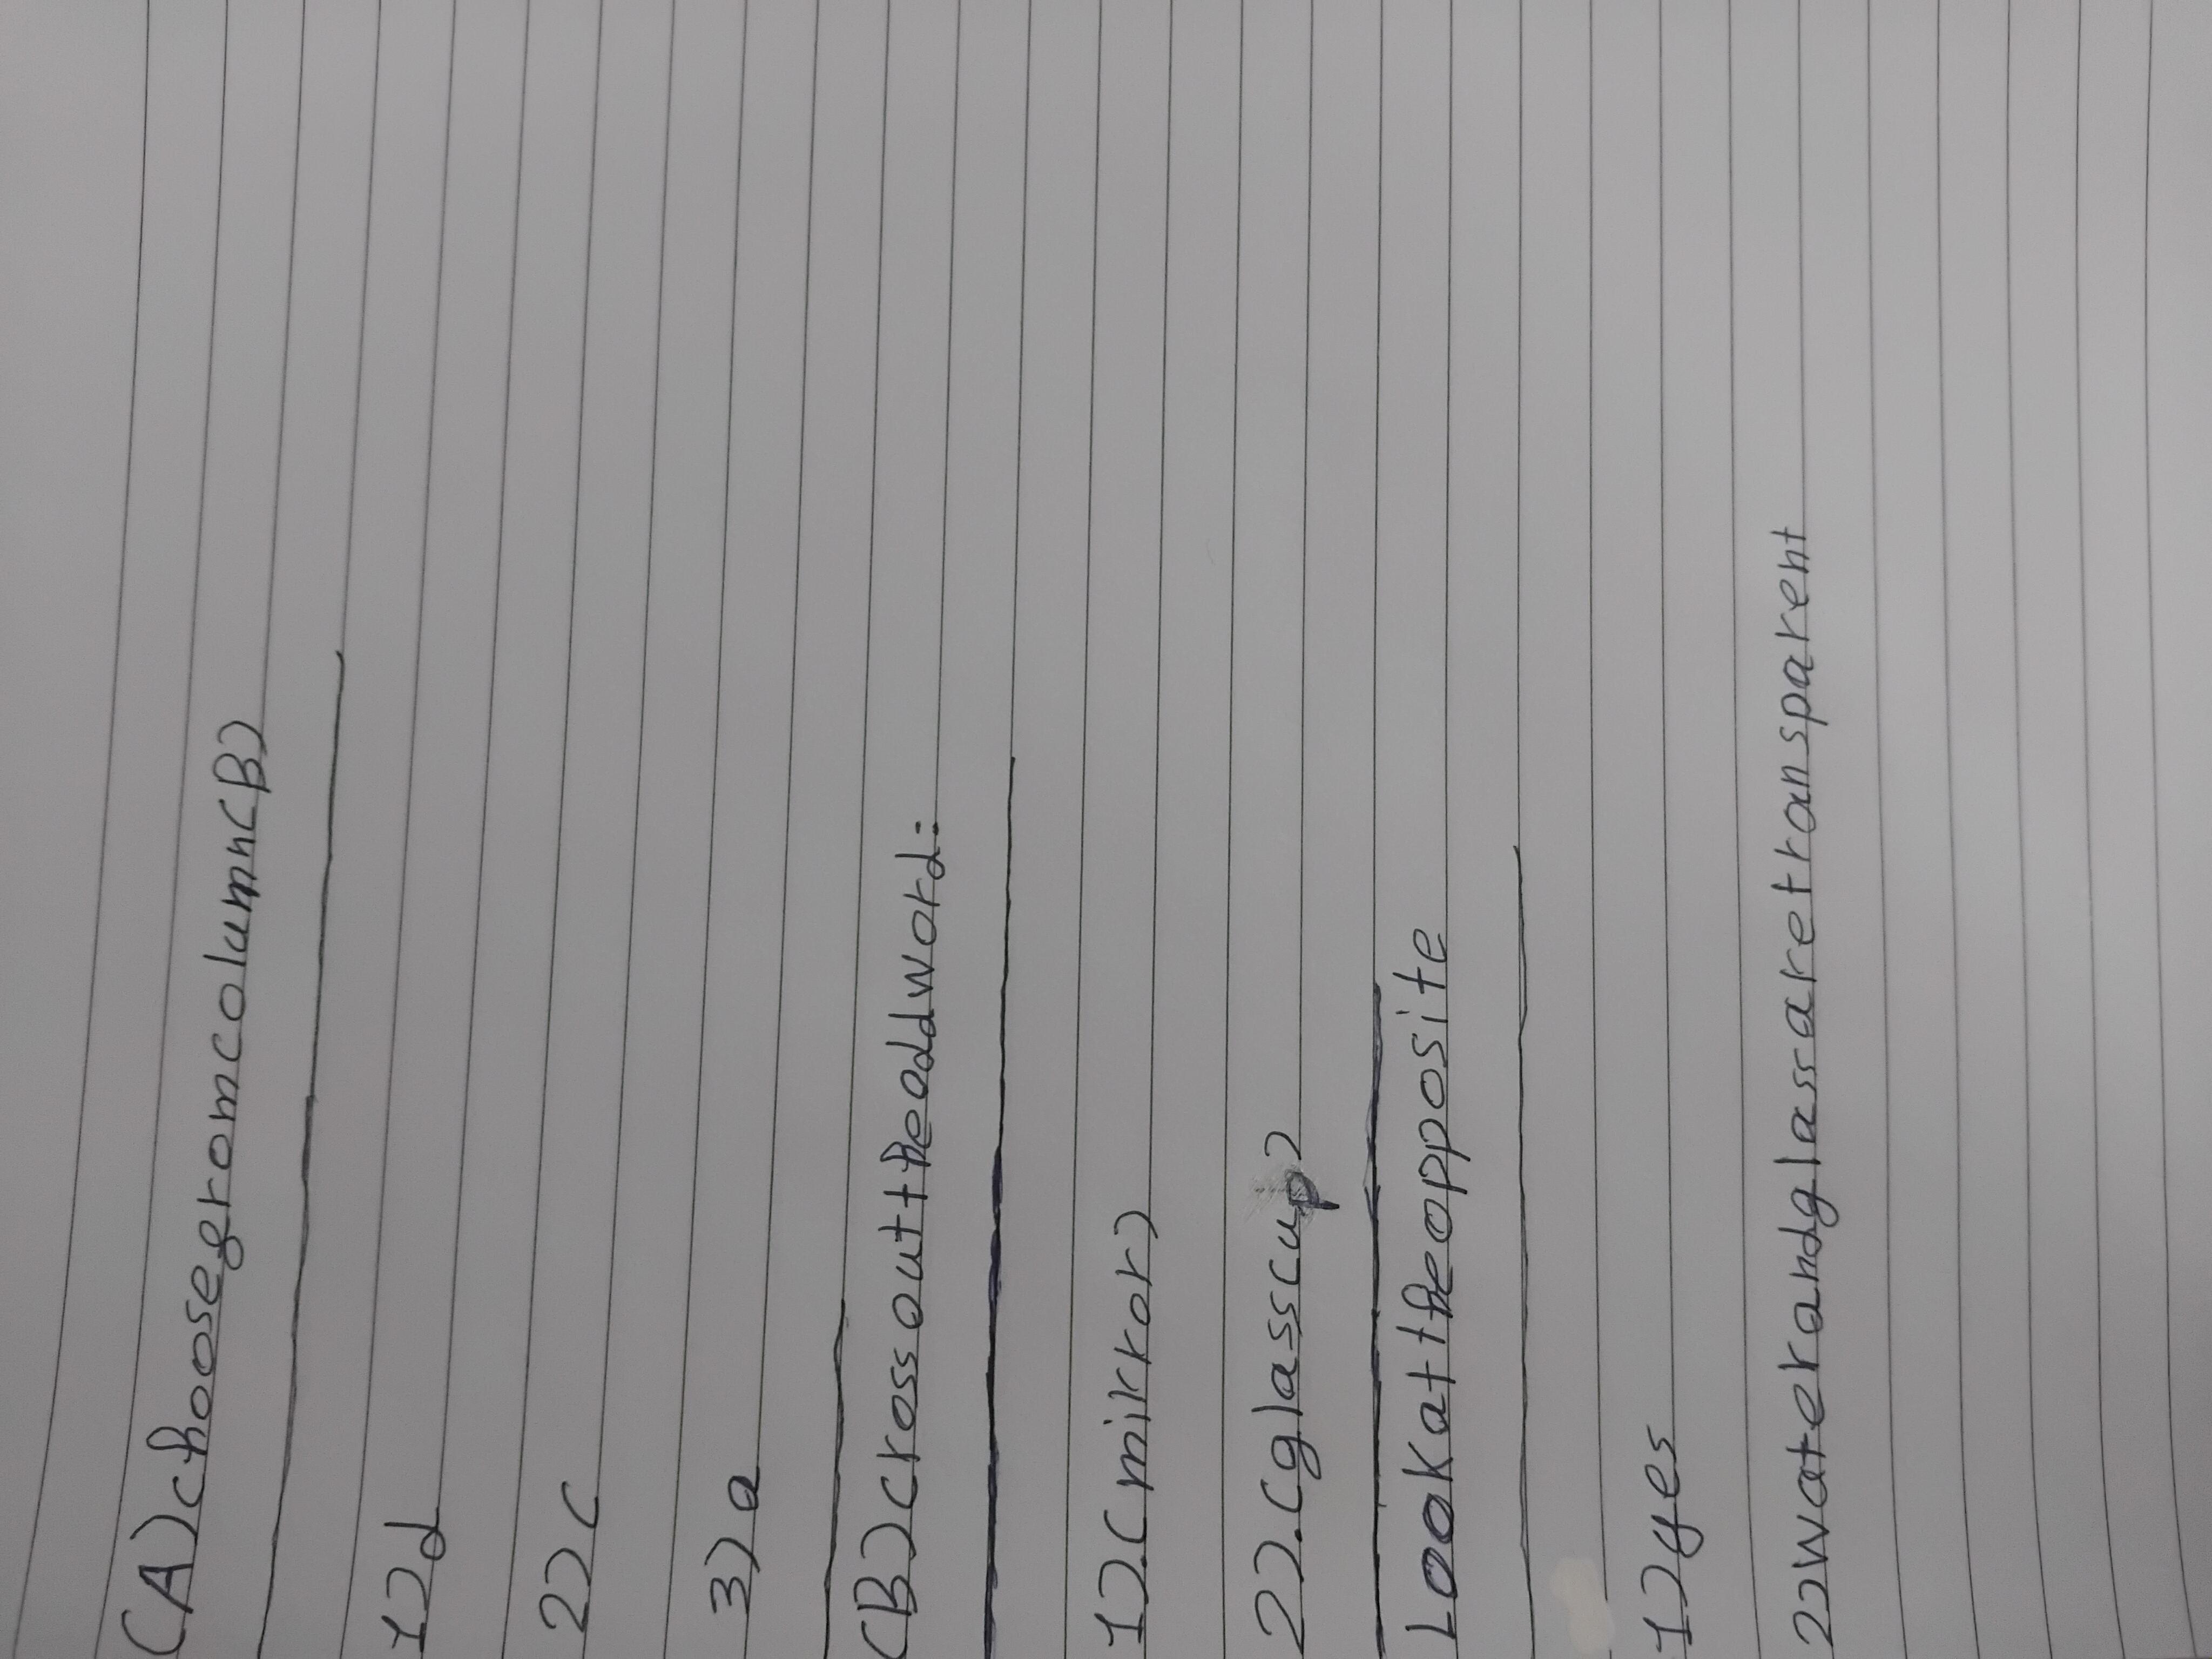 (A) choose grom column (B)
1) d
2) c
3) a
(B) cross out the odd word:
1). (mirror)
2). (glass cup)
Look at the opposite
1) yes
2) water and glass are transparent